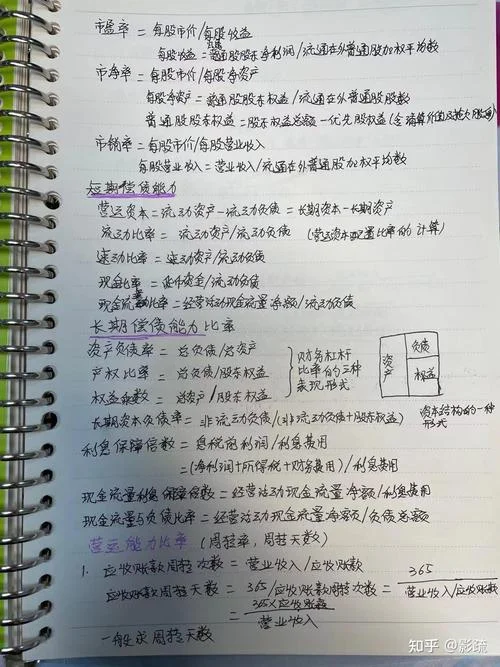 市盈率 = 每股市价/每股收益
每股收益 = 普通股股东净利润/流通在外普通股加权平均数
市净率 = 每股市价/每股净资产
每股净资产 = 普通股股东权益/流通在外普通股股数
普通股股东权益 = 股东权益总额-优先股权益(含清算价值及拖欠股息)
市销率 = 每股市价/每股营业收入
每股营业收入 = 营业收入/流通在外普通股加权平均数
短期偿债能力
营运资本 = 流动资产-流动负债 = 长期资本-长期资产
流动比率 = 流动资产/流动负债 (营运资本配置比率的计算)
速动比率 = 速动资产/流动负债
现金比率 = 货币资金/流动负债
现金流量比率 = 经营活动现金流量净额/流动负债
长期偿债能力比率
资产负债率 = 总负债/总资产
产权比率 = 总负债/股东权益
权益乘数 = 总资产/股东权益
财务杠杆
比率的三种
表现形式
资产
负债
权益
长期资本负债率 = 非流动负债/(非流动负债+股东权益)
资本结构的一种
形式
利息保障倍数 = 息税前利润/利息费用
=(净利润+所得税+财务费用)/利息费用
现金流量利息保障倍数 = 经营活动现金流量净额/利息费用
现金流量与负债比率 = 经营活动现金流量净额/负债总额
营运能力比率 (周转率,周转天数)
1. 应收账款周转次数 = 营业收入/应收账款
应收账款周转天数 = 365/应收账款周转次数 = 365
营业收入/应收账款
= 365×应收账款
营业收入
一般求周转天数
知乎 @影琉